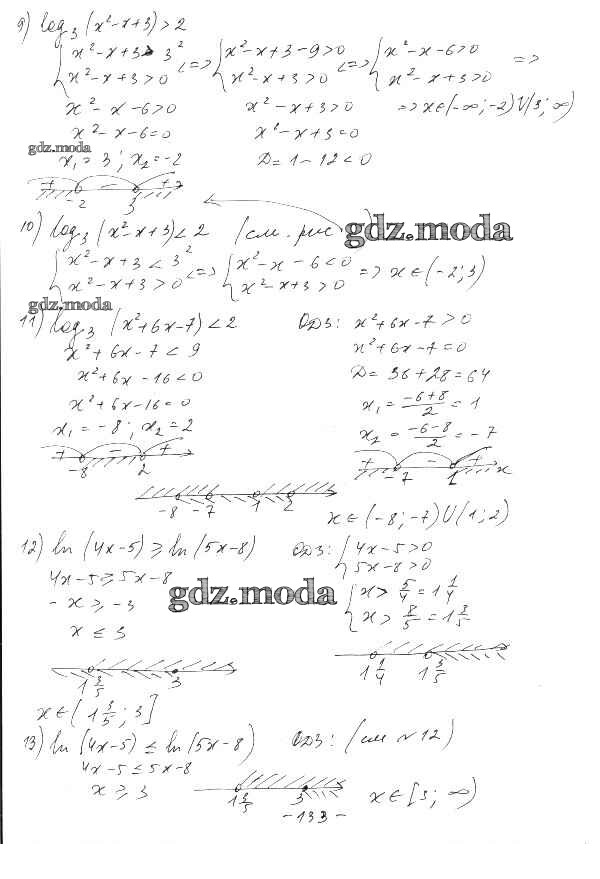 9) log₃ (x²-x+3) > 2
{ x²-x+3 > 3² <=> { x²-x+3-9>0 <=> { x²-x-6>0 =>
{ x²-x+3>0 { x²-x+3>0 { x²-x+3>0
x²-x-6>0 x²-x+3>0 => x∈(-∞;-2)∪(3;∞)
x²-x-6=0 x²-x+3=0
gdz.moda
x₁=3; x₂=-2 D=1-12<0
+ - +
-2 3
10) log₃ (x²-x+3) < 2 (см. рис gdz.moda
{ x²-x+3 < 3² <=> { x²-x-6<0 => x∈(-2;3)
{ x²-x+3>0 { x²-x+3>0
gdz.moda
11) log₃ (x²+6x-7) < 2 ОДЗ: x²+6x-7>0
x²+6x-7<9 x²+6x-7=0
x²+6x-16<0 D=36+28=64
x²+6x-16=0 x₁ = (-6+8)/2 = 1
x₁=-8; x₂=2 x₂ = (-6-8)/2 = -7
+ - + + - +
-8 2 -7 1 x
-8 -7 1 2
x∈(-8;-7)∪(1;2)
12) ln (4x-5) ≥ ln (5x-8) ОДЗ: { 4x-5>0
{ 5x-8>0
4x-5≥5x-8 gdz.moda { x > 5/4 = 1 1/4
-x≥-3 { x > 8/5 = 1 3/5
x≤3
1 3/5 3 1 1/4 1 3/5
x∈(1 3/5; 3]
13) ln (4x-5) ≤ ln (5x-8) ОДЗ: (см №12)
4x-5≤5x-8
x≥3 1 3/5 3 x∈[3;∞)
-133-